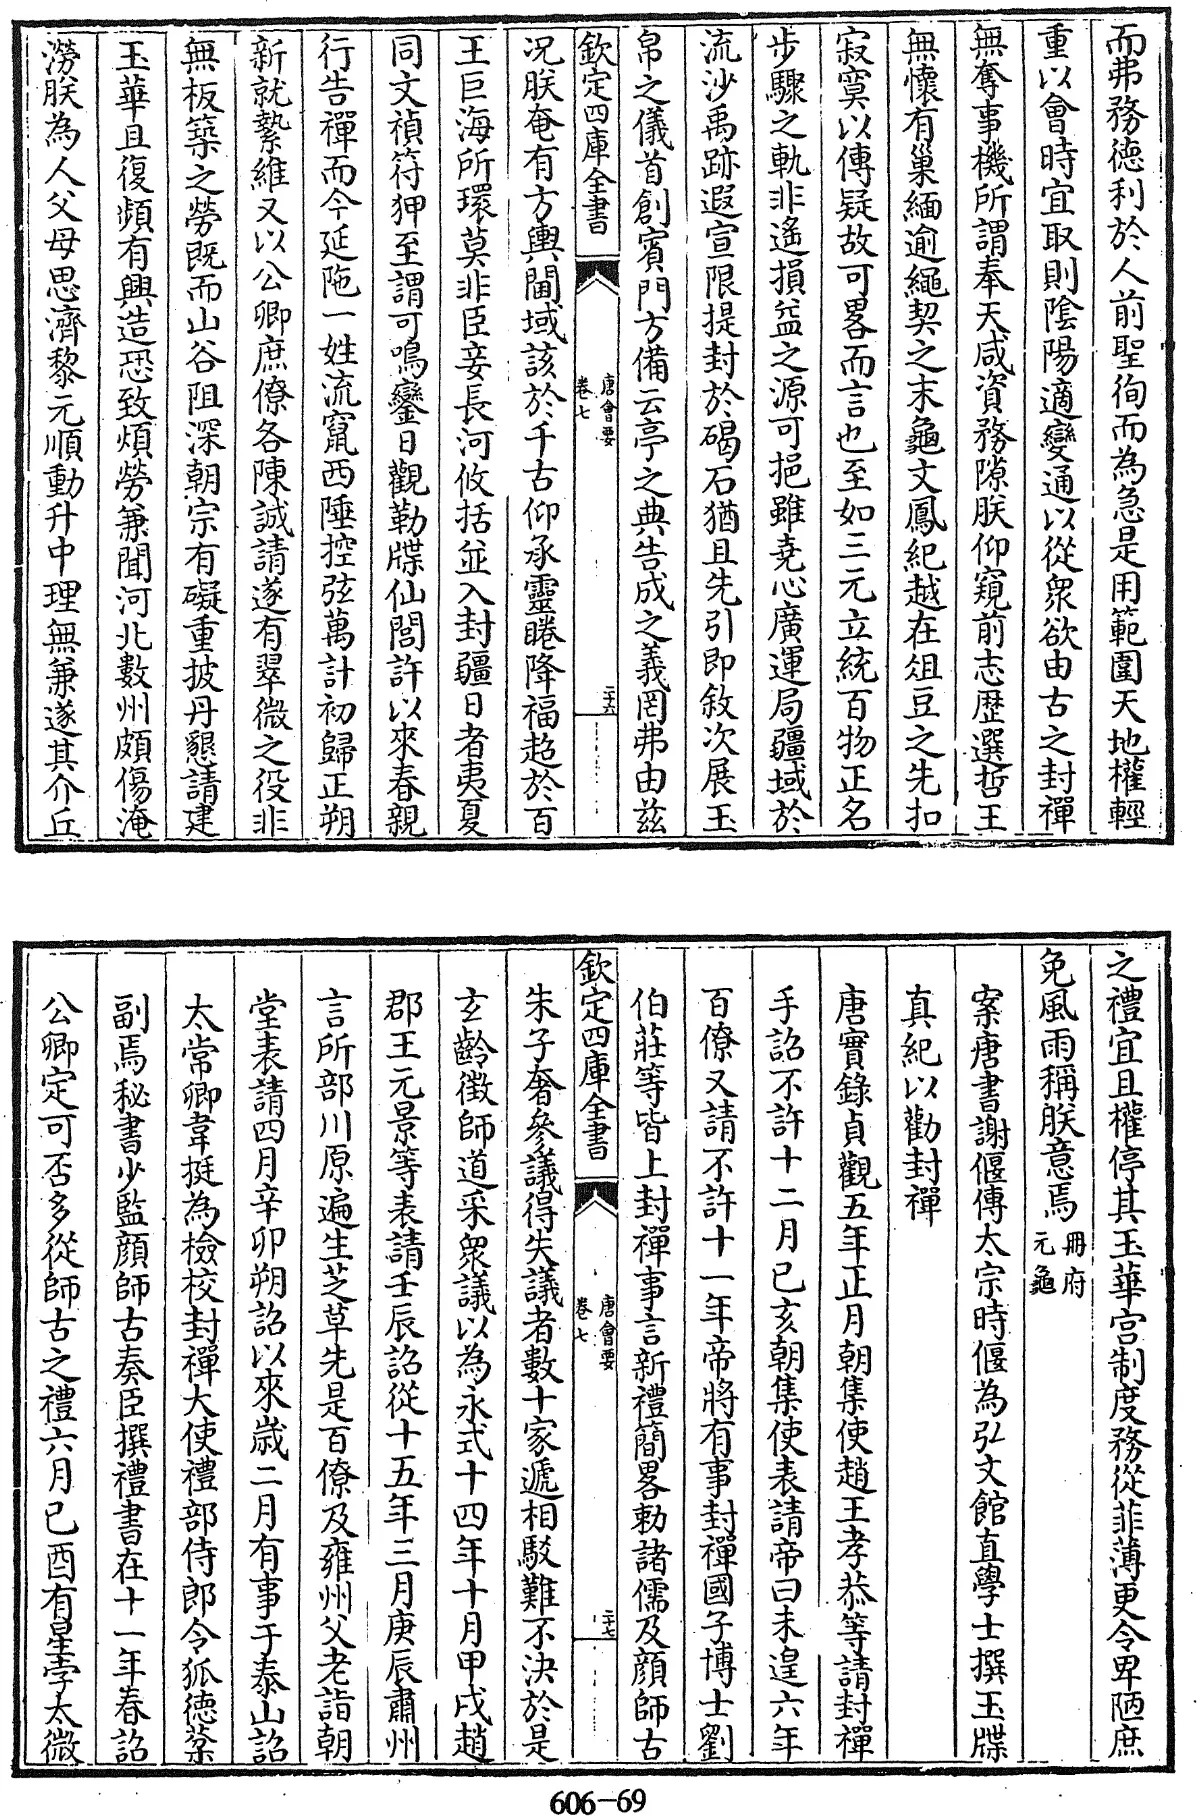 而弗務徳利於人前聖徇而為急是用範圍天地權輕
重以會時宜取則隂陽適變通以從衆欲由古之封禪
無奪事機所謂奉天咸資務隙朕仰窺前志歴選哲王
無懷有巢緬逾繩契之末龜文鳳紀越在俎豆之先扣
寂寞以傳疑故可畧而言也至如三元立統百物正名
步驟之軌非遙損益之源可挹雖堯心廣運局疆域於
流沙禹跡遐宣限提封於碣石猶且先引即敘次展玉
帛之儀首創賓門方備云亭之典告成之義罔弗由兹
欽定四庫全書
唐會要
卷七
二十六
况朕奄有方輿闔域該於千古仰承靈睠降福超於百
王巨海所環莫非臣妾長河攸括並入封疆日者夷夏
同文禎符狎至謂可鳴鑾日觀勒牒仙閭許以來春親
行告禪而今延陁一姓流竄西陲控弦萬計初歸正朔
新就縶維又以公卿庶僚各陳誠請遂有翠微之役非
無板築之勞既而山谷阻深朝宗有礙重披丹懇請建
玉華且復頻有興造恐致煩勞兼聞河北數州頗傷淹
澇朕為人父母思濟黎元順動升中理無兼遂其介丘
之禮宜且權停其玉華宮制度務從菲薄更令卑陋庶
免風雨稱朕意焉冊府元龜
案唐書謝偃傳太宗時偃為弘文館直學士撰玉牒
真紀以勸封禪
唐實錄貞觀五年正月朝集使趙王孝恭等請封禪
手詔不許十二月己亥朝集使表請帝曰未遑六年
百僚又請不許十一年帝將有事封禪國子博士劉
伯莊等皆上封禪事言新禮簡畧勅諸儒及顏師古
欽定四庫全書
唐會要
卷七
二十七
朱子奢參議得失議者數十家遞相駁難不決於是
玄齡徵師道采衆議以為永式十四年十月甲戌趙
郡王元景等表請壬辰詔從十五年三月庚辰肅州
言所部川原遍生芝草先是百僚及雍州父老詣朝
堂表請四月辛卯朔詔以來歲二月有事于泰山詔
太常卿韋挺為檢校封禪大使禮部侍郎令狐德棻
副焉秘書少監顏師古奏臣撰禮書在十一年春詔
公卿定可否多從師古之禮六月己酉有星孛太微
606-69